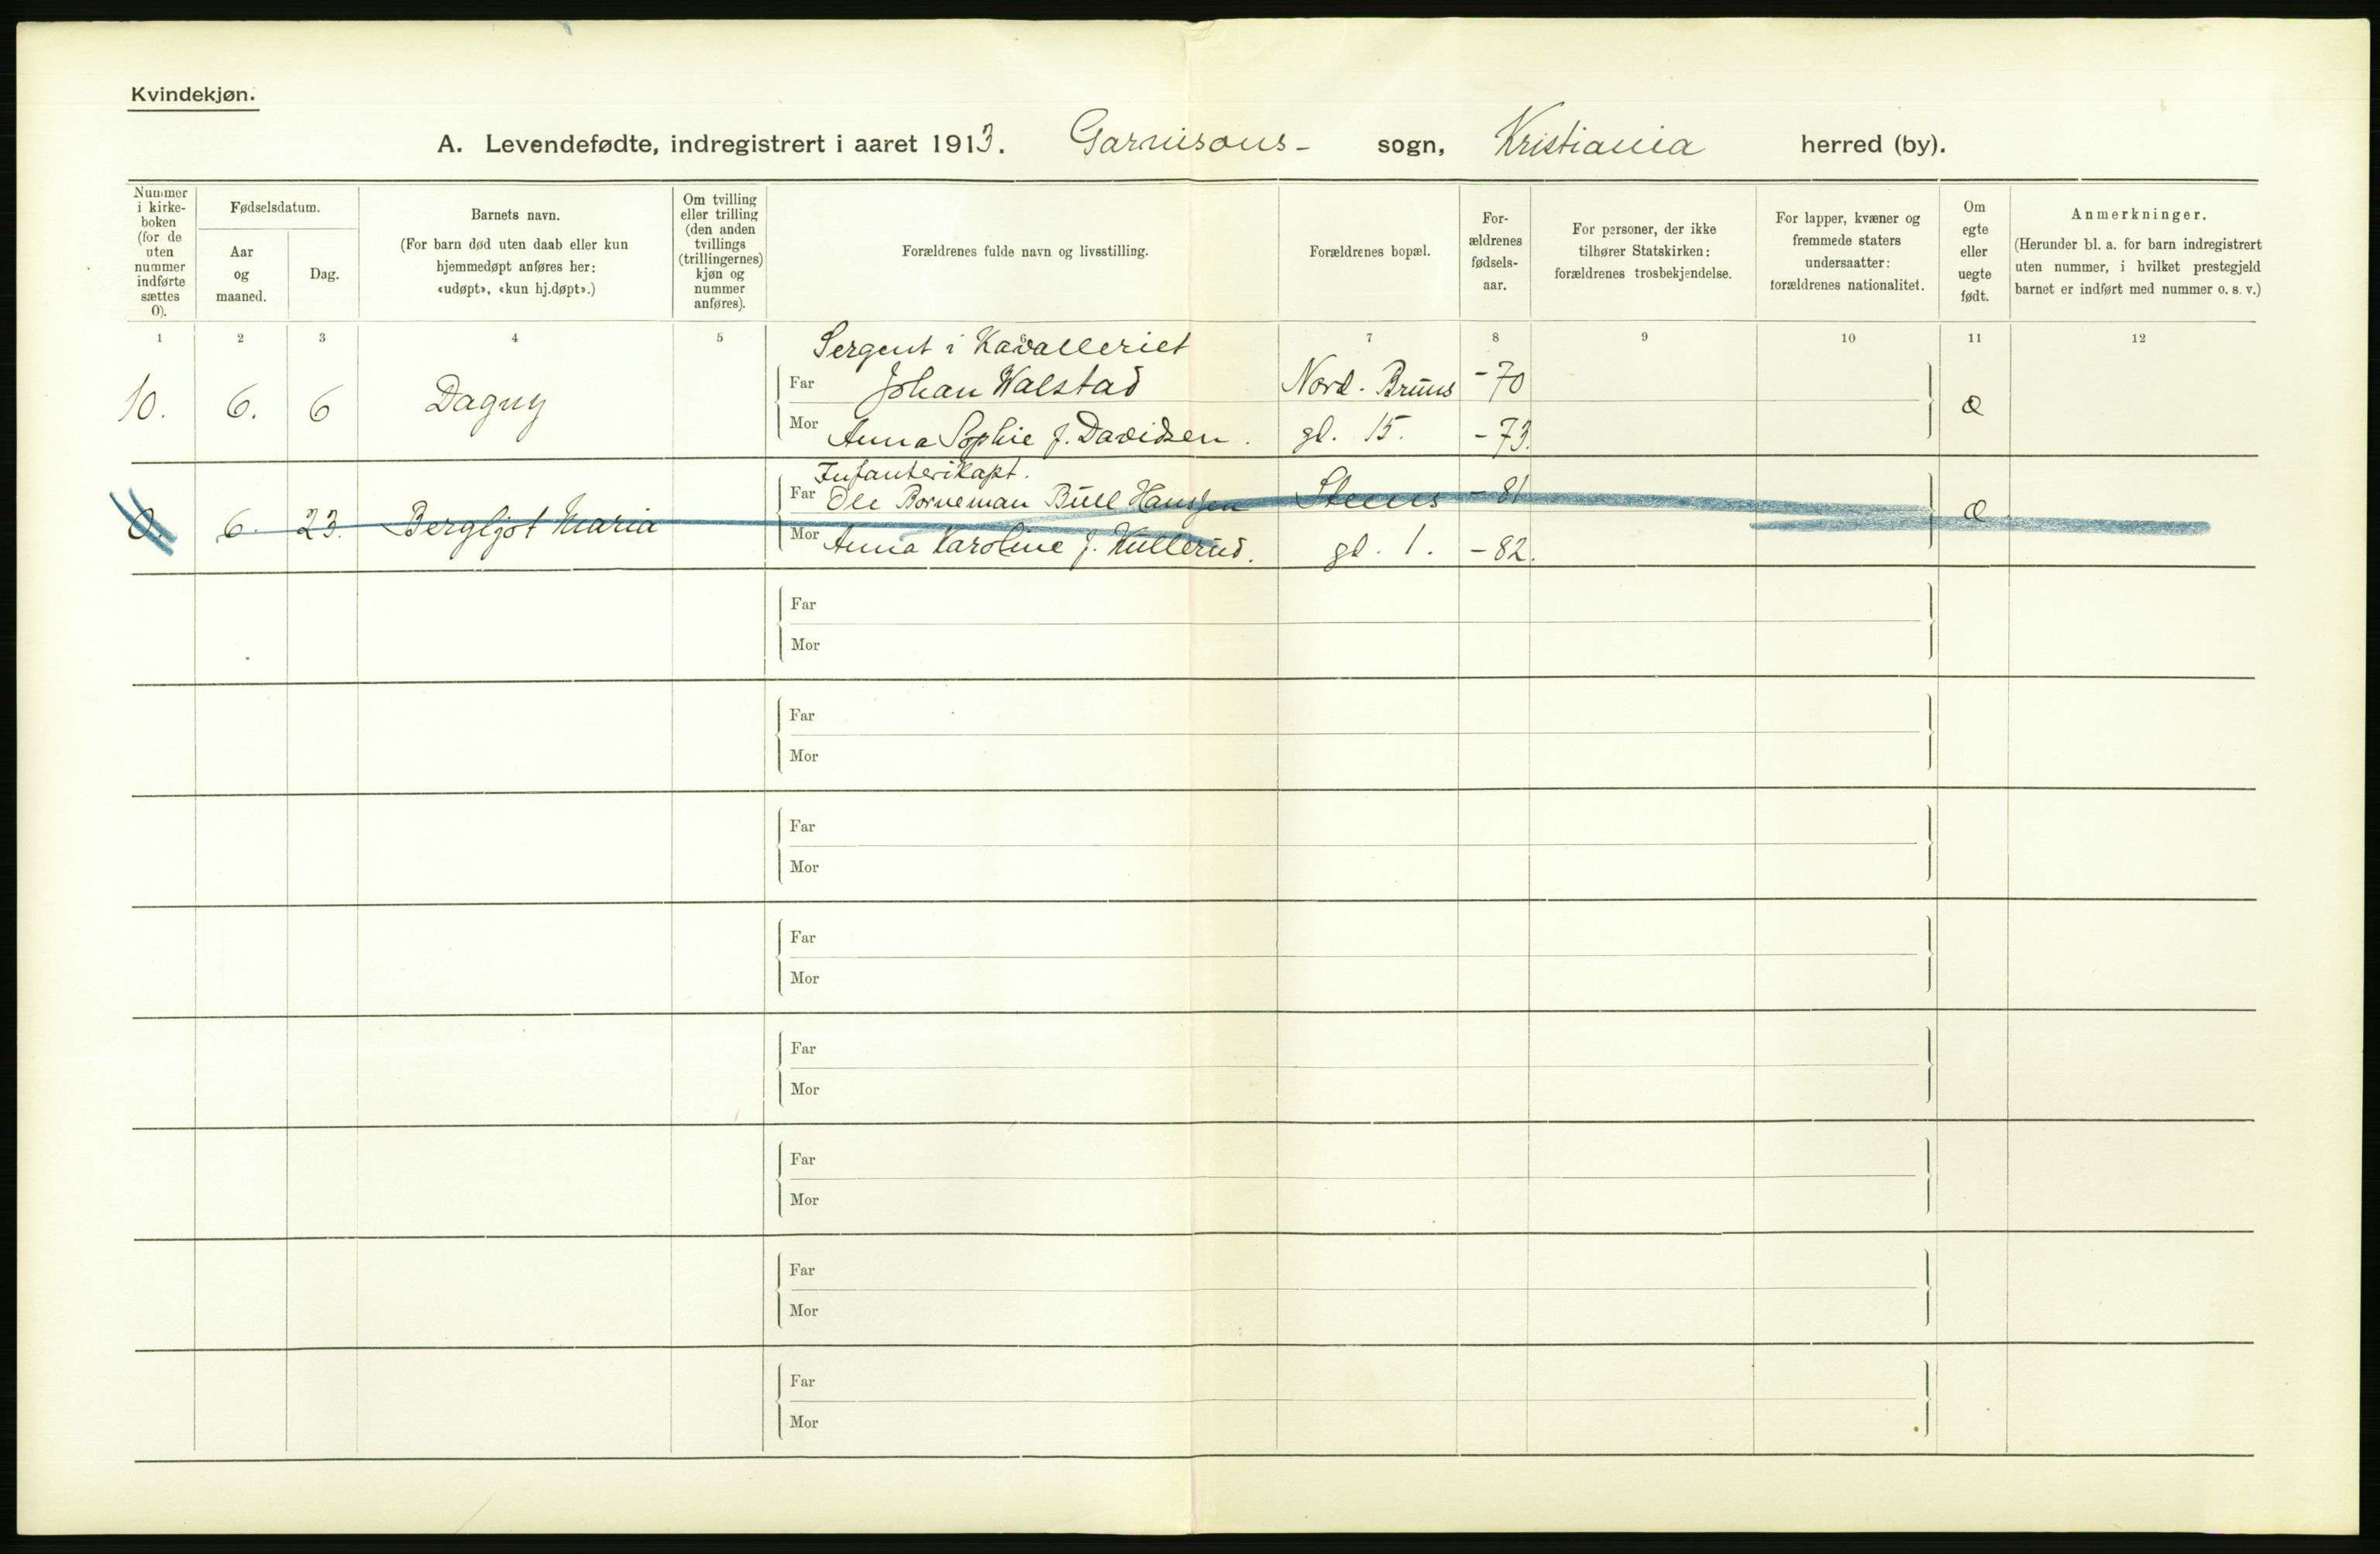 Kvindekjøn.
A. Levendefødte, indregistrert i aaret 1913. Garnisons- sogn, Kristiania herred (by).
Nummer i kirke-boken (for de uten nummer indførte sættes 0).
Fødselsdatum.
Aar og maaned.
Dag.
Barnets navn.
(For barn død uten daab eller kun hjemmedøpt anføres her: «udøpt», «kun hj.døpt».)
Om tvilling eller trilling (den anden tvillings (trillingernes) kjøn og nummer anføres).
Forældrenes fulde navn og livsstilling.
Forældrenes bopæl.
For-ældrenes fødsels-aar.
For personer, der ikke tilhører Statskirken: forældrenes trosbekjendelse.
For lapper, kvæner og fremmede staters undersaatter: forældrenes nationalitet.
Om egte eller uegte født.
Anmerkninger.
(Herunder bl. a. for barn indregistrert uten nummer, i hvilket prestegjeld barnet er indført med nummer o. s. v.)
1 2 3 4 5 6 7 8 9 10 11 12
Sergent i Kavalleriet
10. 6. 6 Dagny Far Johan Walstad Nord. Bruns -70 æ
Mor Anna Sophie f. Davidsen. gd. 15. -73.
Infanterikapt.
0. 6. 23. Bergljot Maria Far Ole Borneman Bull Hanssen Steens -81 æ
Mor Anna Karoline f. Hullerud. gd. 1. -82.
Far
Mor
Far
Mor
Far
Mor
Far
Mor
Far
Mor
Far
Mor
Far
Mor
Far
Mor